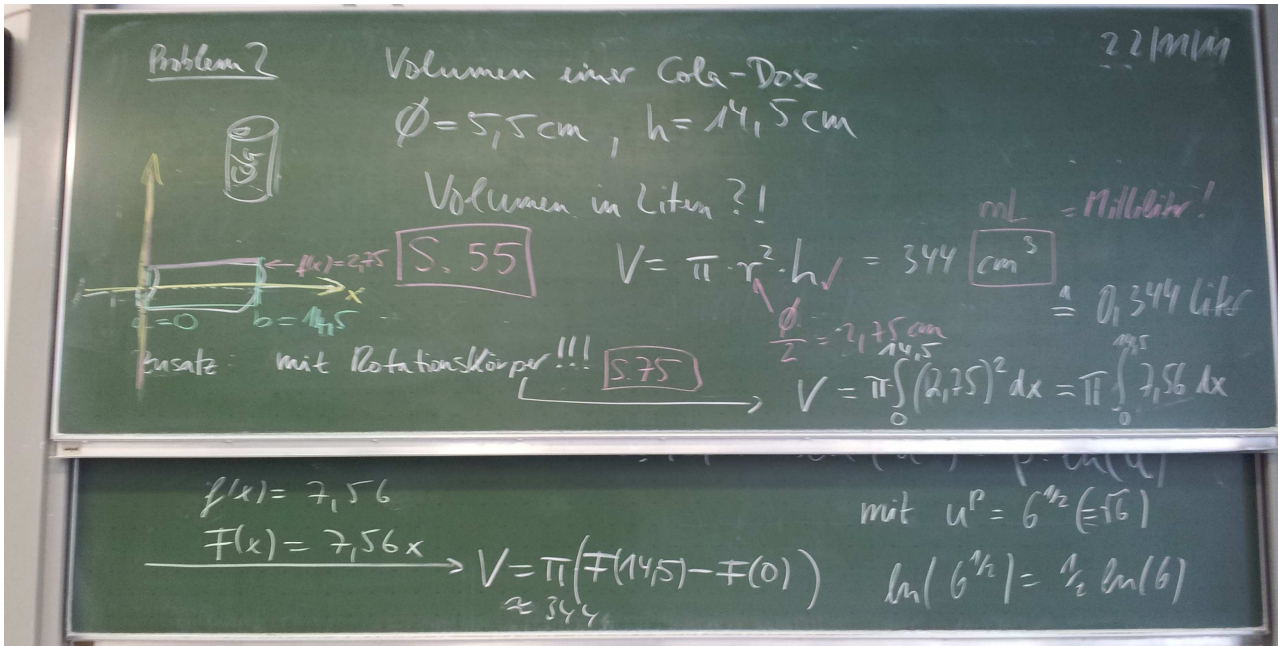 Problem 2
Volumen einer Cola-Dose
22/11/11
Ø = 5,5 cm , h = 14,5 cm
Volumen in Litern ?!
mL = Milliliter!
S. 55
V = π · r² · h = 344 cm³
← f(x) = 2,75
x
≙ 0,344 Liter
Ø/2 = 2,75 cm
a = 0 b = 14,5
Zusatz: mit Rotationskörper!!!
S. 75
V = π ∫₀^14,5 (2,75)² dx = π ∫₀^14,5 7,56 dx
f(x) = 7,56
F(x) = 7,56x
V = π(F(14,5) − F(0))
≈ 344
mit u^p = 6^1/2 (=√6)
ln(6^1/2) = 1/2 ln(6)